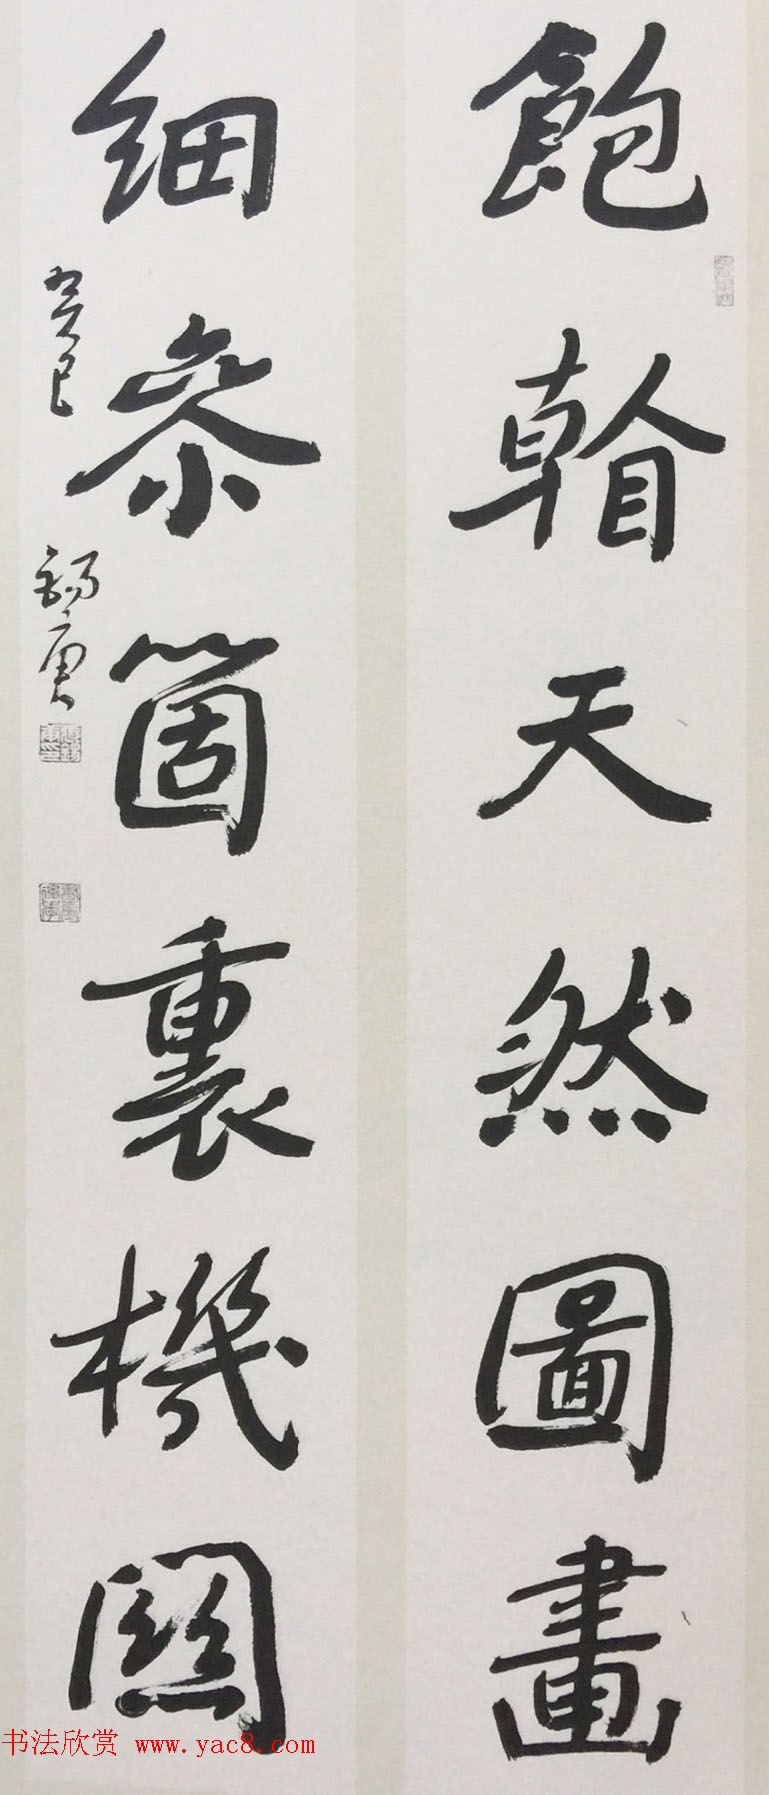 飽天然圖畫
細參箇裏機關
癸巳 錫庚
书法欣赏 www.yac8.com